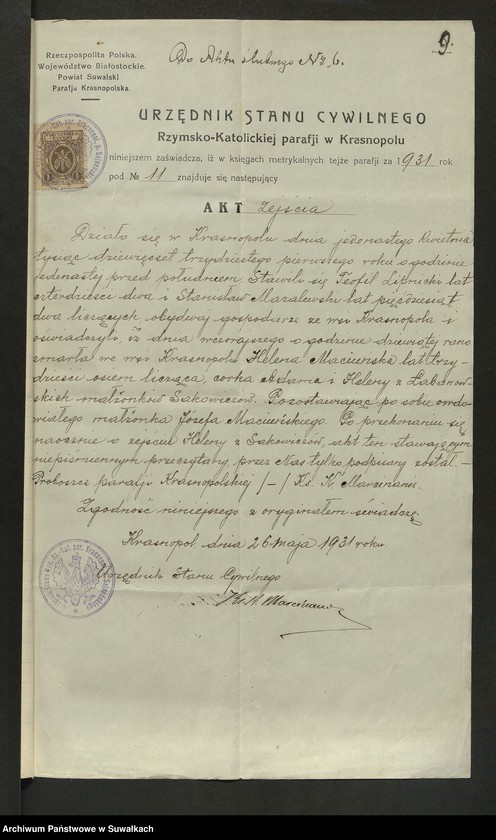 9.
Do Aktu ślubnego № 6.
Rzeczpospolita Polska.
Województwo Białostockie.
Powiat Suwalski
Parafja Krasnopolska.
URZĘDNIK STANU CYWILNEGO
Rzymsko-Katolickiej parafji w Krasnopolu
niniejszem zaświadcza, iż w księgach metrykalnych tejże parafji za 1931 rok
pod № 11 znajduje się następujący
AKT zejścia
Działo się w Krasnopolu dnia jedenastego kwietnia
tysiąc dziewięćset trzydziestego pierwszego roku o godzinie
jedenastej przed południem. Stawili się Teofil Lipnicki lat
czterdzieści dwa i Stanisław Mazalewski lat pięćdziesiąt
dwa liczących, obydwaj gospodarze ze wsi Krasnopola i
oświadczyli, iż dnia wczorajszego o godzinie dziewiątej rano
zmarła we wsi Krasnopolu Helena Maciewska lat trzy-
dzieści osiem licząca, córka Adama i Heleny z Łabanow-
skich małżonków Sakowiczów. Pozostawiając po sobie owdo-
wiałego małżonka Józefa Maciewskiego. Po przekonaniu się
naocznie o zejściu Heleny z Sakowiczów, akt ten stawającym
niepiśmiennym przeczytany, przez Nas tylko podpisany został. —
Proboszcz parafji Krasnopolskiej /-/ Ks. K. Marcinam.
Zgodność niniejszego z oryginałem świadczę.
Krasnopol dnia 26 maja 1931 roku.
Urzędnik Stanu Cywilnego
Ks. K.
Archiwum Państwowe w Suwałkach